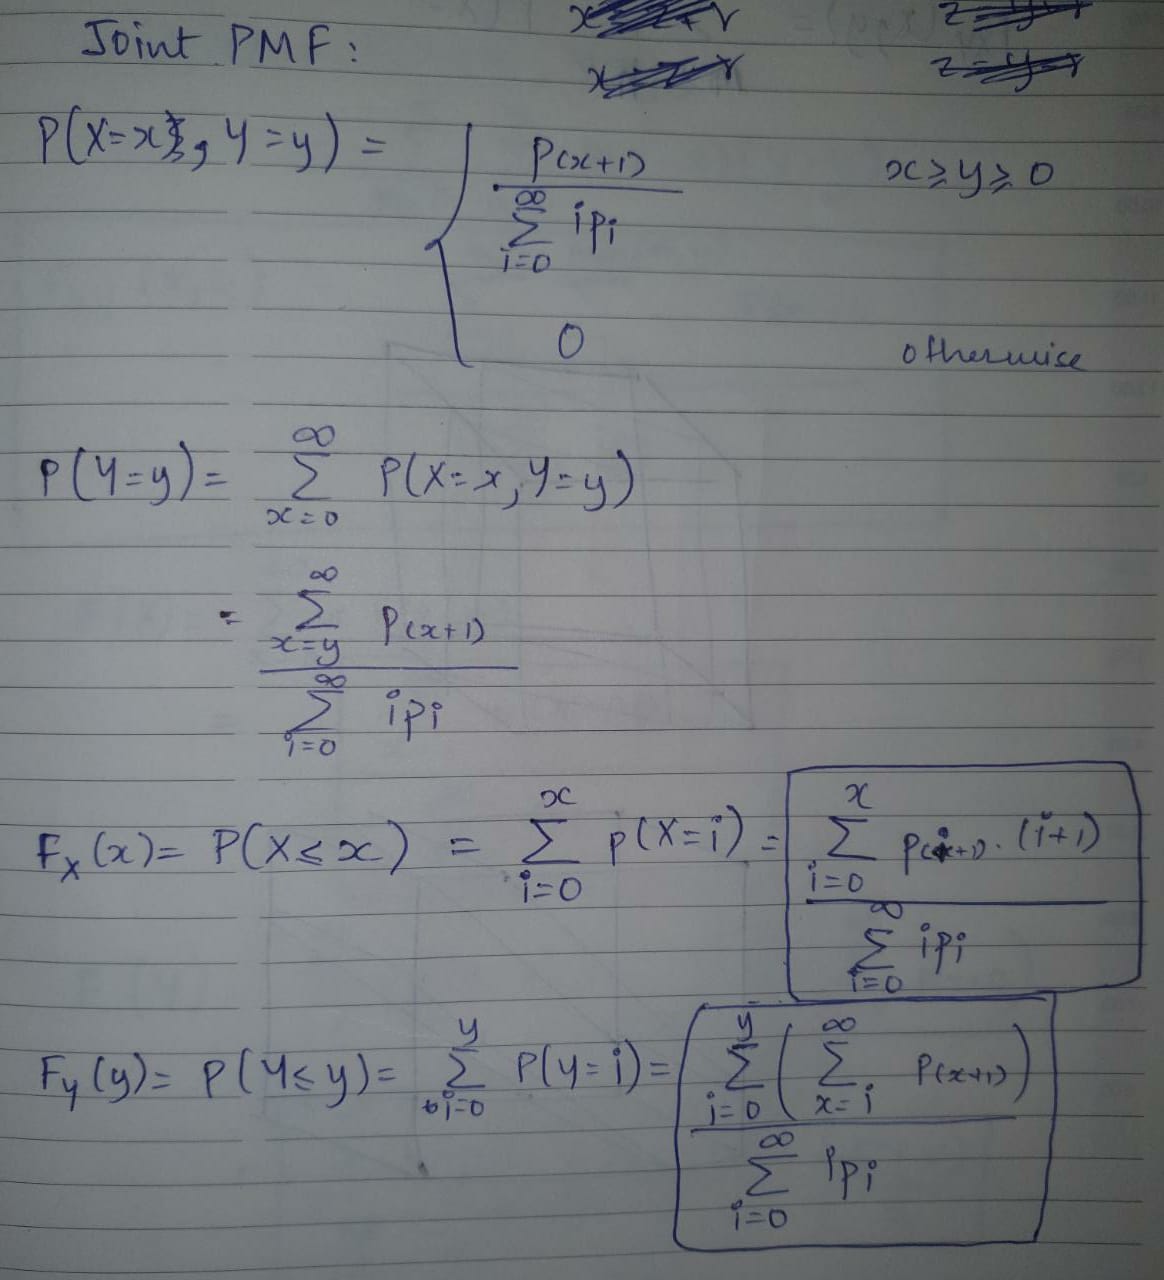 Joint PMF:
P(X=x, Y=y) = { P(x+1) / ∑_{i=0}^{∞} i p_i   x ≥ y ≥ 0
0   otherwise
P(Y=y) = ∑_{x=0}^{∞} P(X=x, Y=y)
= ∑_{x=y}^{∞} P(x+1) / ∑_{i=0}^{∞} i p_i
F_X(x) = P(X ≤ x) = ∑_{i=0}^{x} p(X=i) = ∑_{i=0}^{x} p(i+1) · (i+1) / ∑_{i=0}^{∞} i p_i
F_Y(y) = P(Y ≤ y) = ∑_{i=0}^{y} P(Y=i) = ∑_{i=0}^{y} ( ∑_{x=i}^{∞} P(x+1) ) / ∑_{i=0}^{∞} i p_i